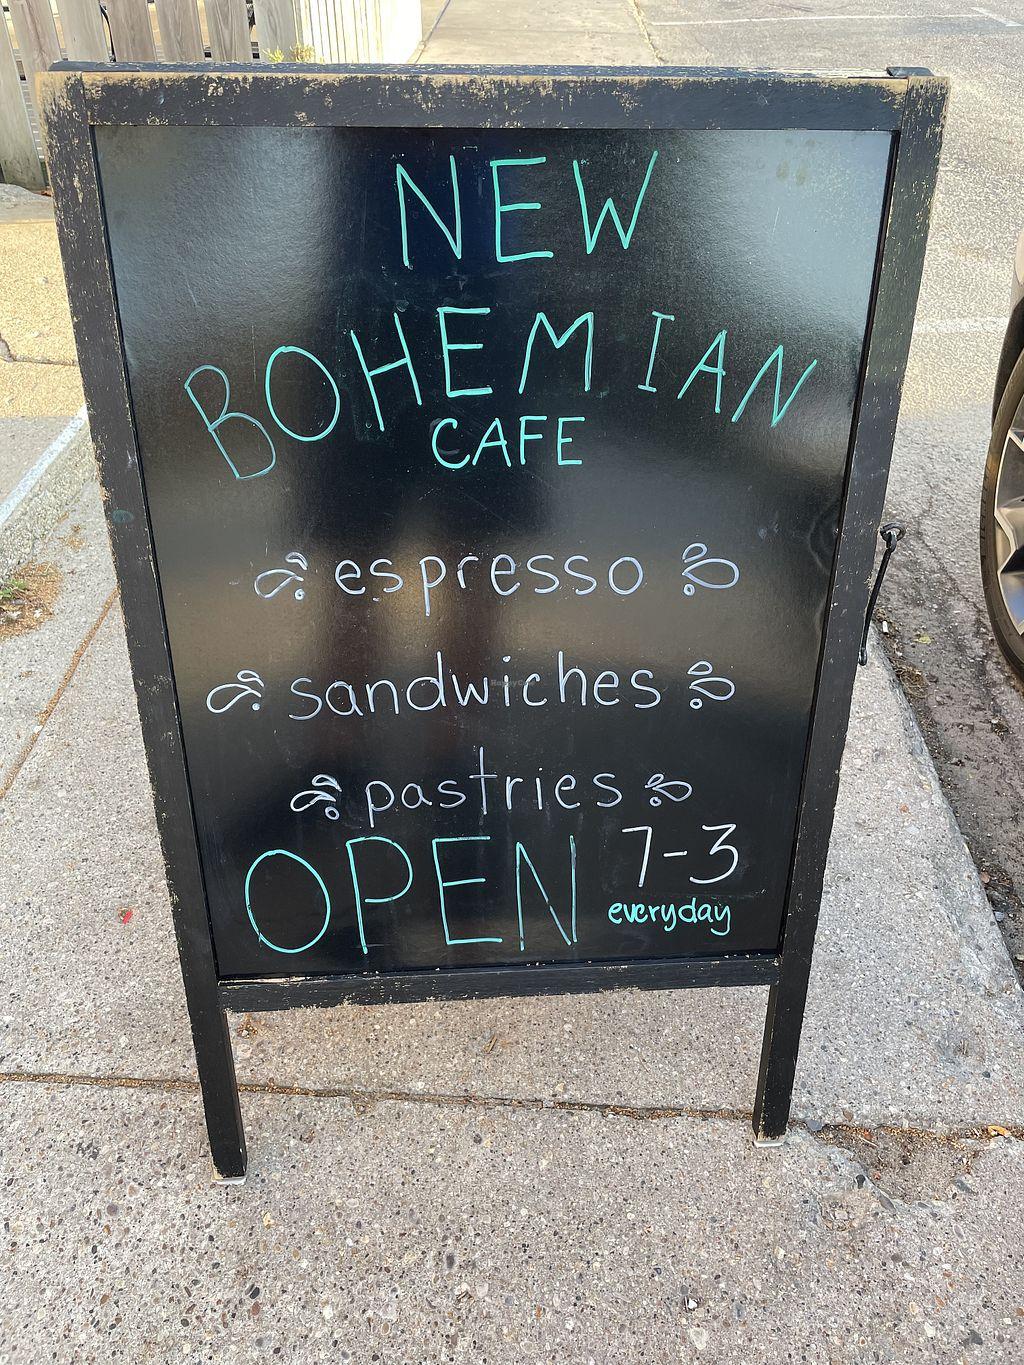 NEW
BOHEMIAN
CAFE
espresso
sandwiches
pastries
OPEN 7-3
everyday